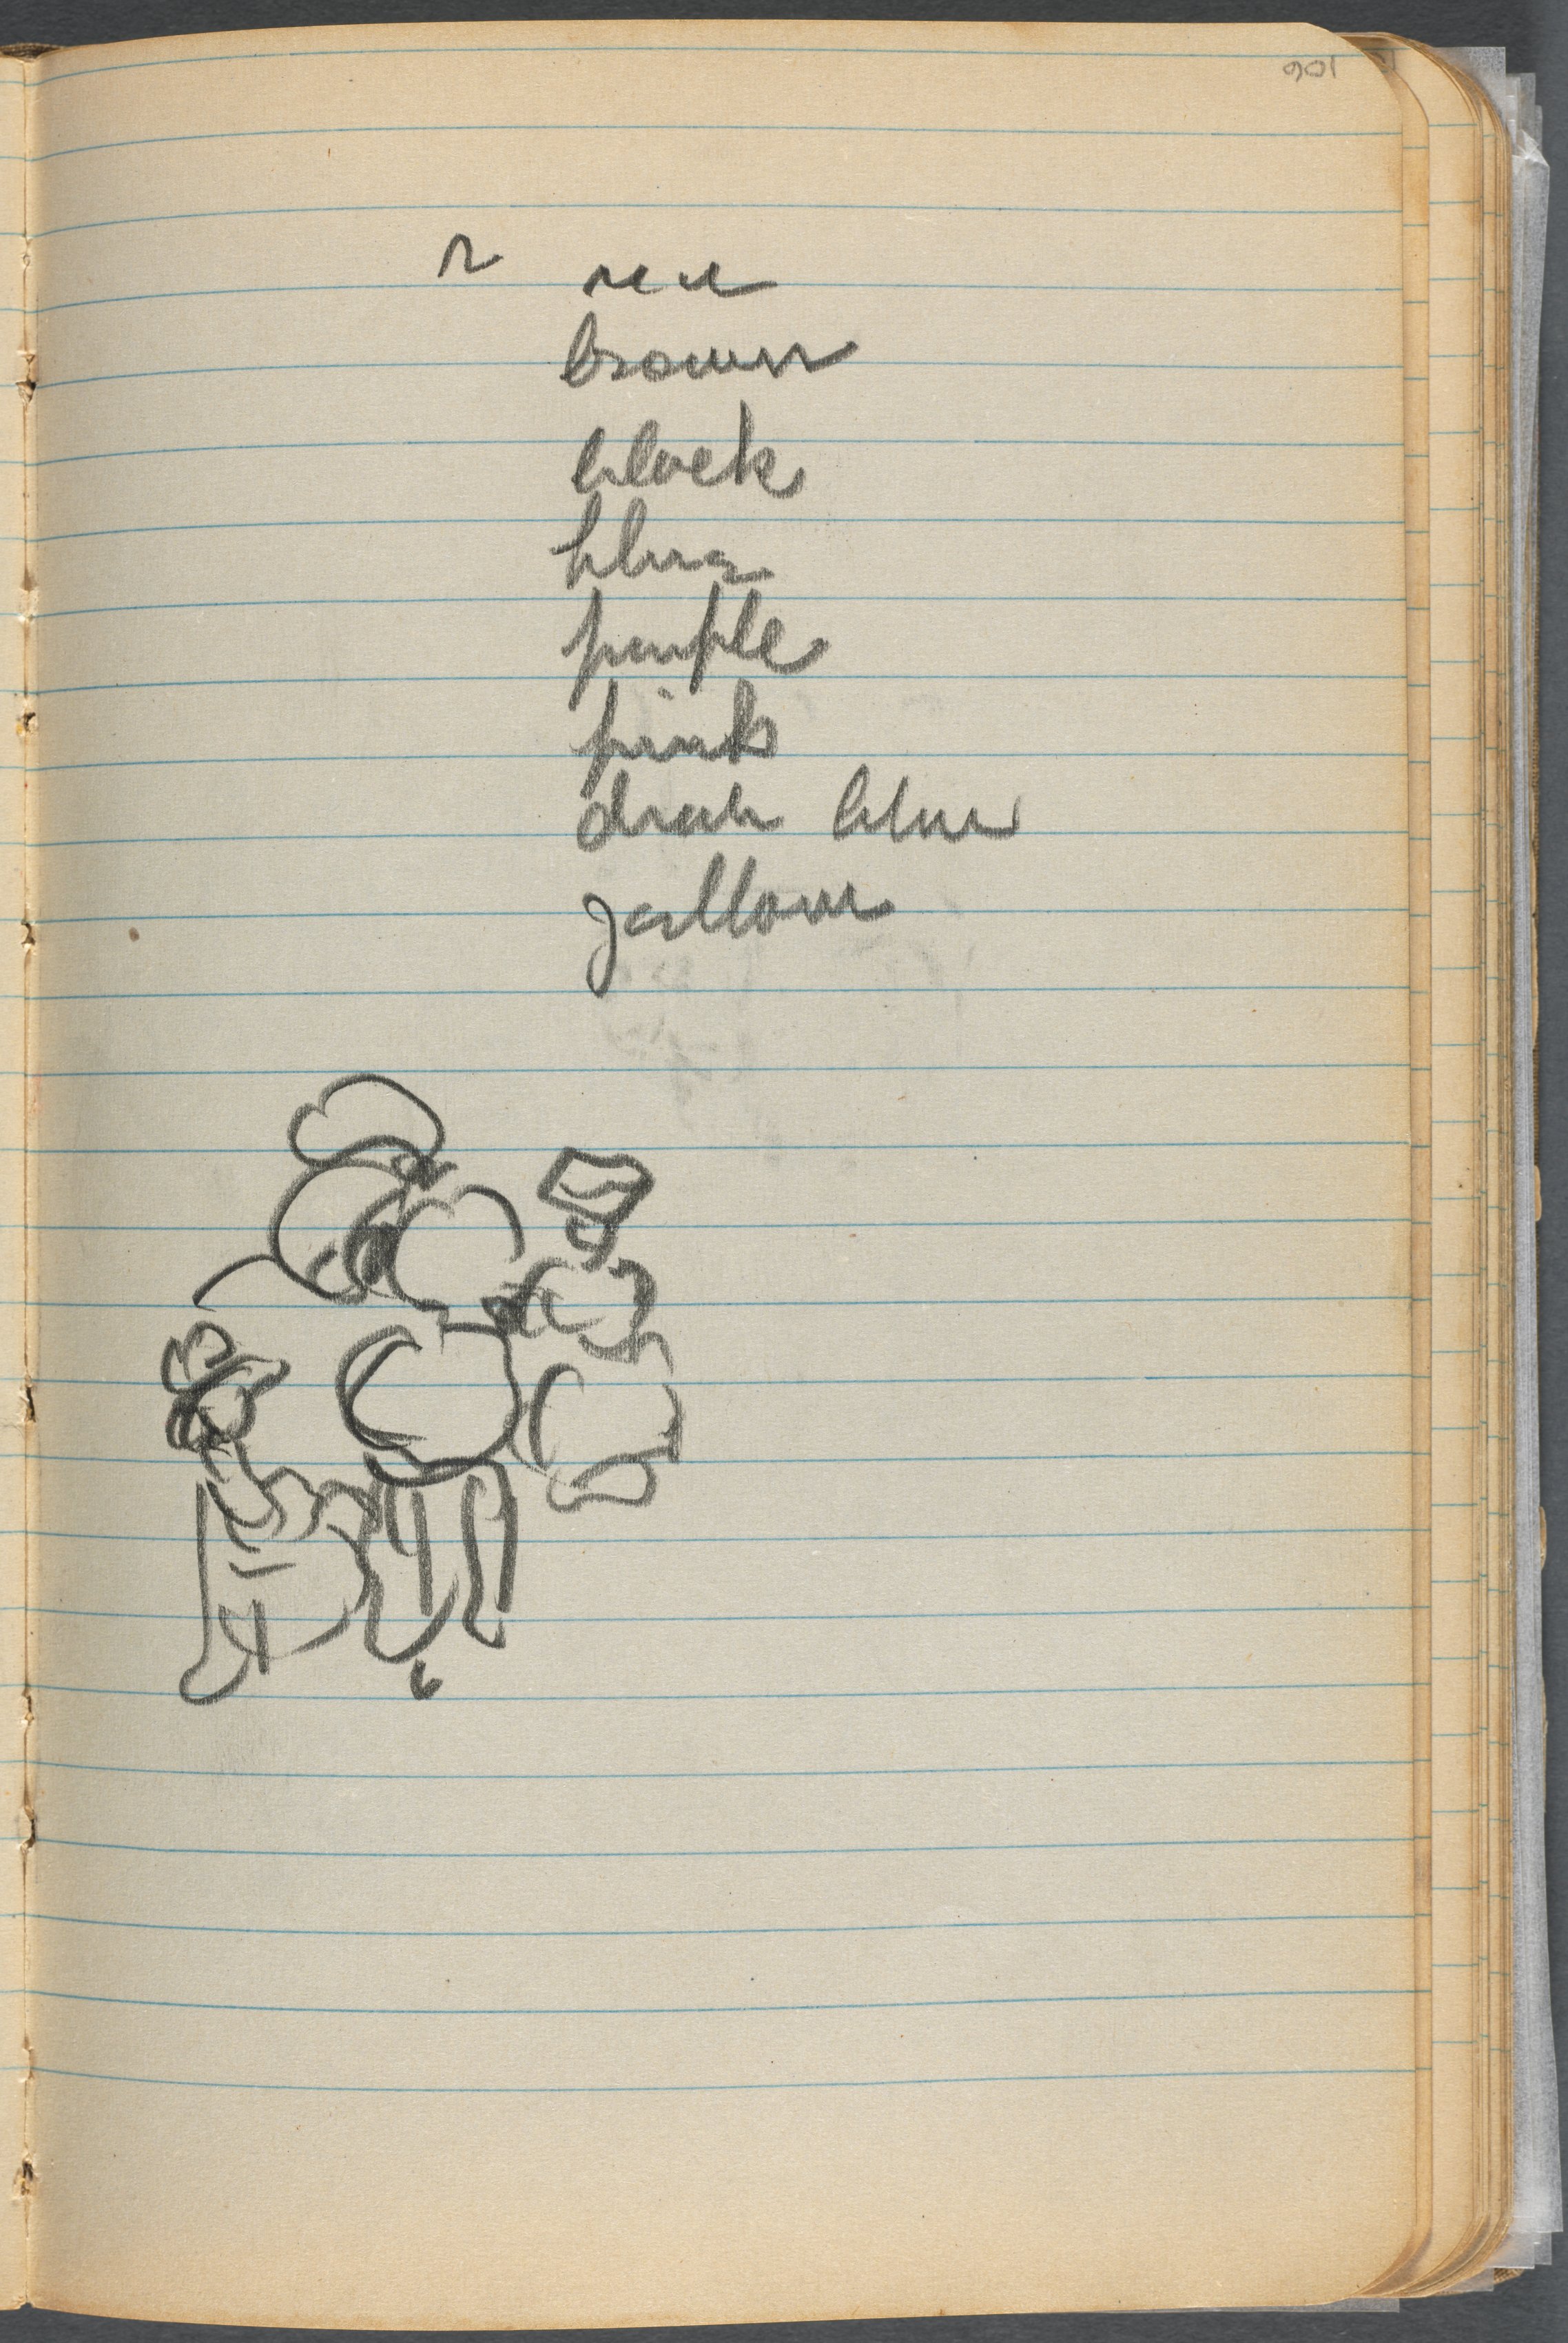 106
r red
brown
black
blue
purple
pink
drab blue
yellow